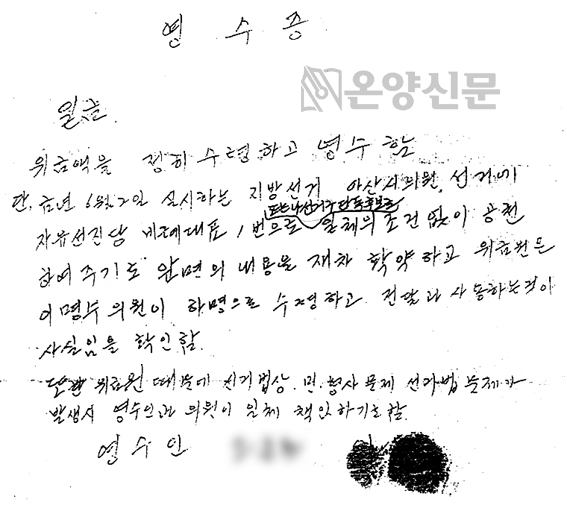 영 수 증
온양신문
일금
위금액을 정히 수령하고 영수함
단, 금년 6월 2일 실시하는 지방선거 아산시의원 선거에
또는 나선거구 단독후보로
자유선진당 비례대표 1번으로 일체의 조건없이 공천
하여 주기로 앞면의 내용을 재차 확약하고 위금원은
이명수 의원이 하명으로 수령하고 전달과 사용하는것이
사실임을 확인함.
위금원 때문에 선거법상, 민.형사 문제 선거법 문제가
발생시 영수인과 의원이 일체 책임하기로함.
영수인